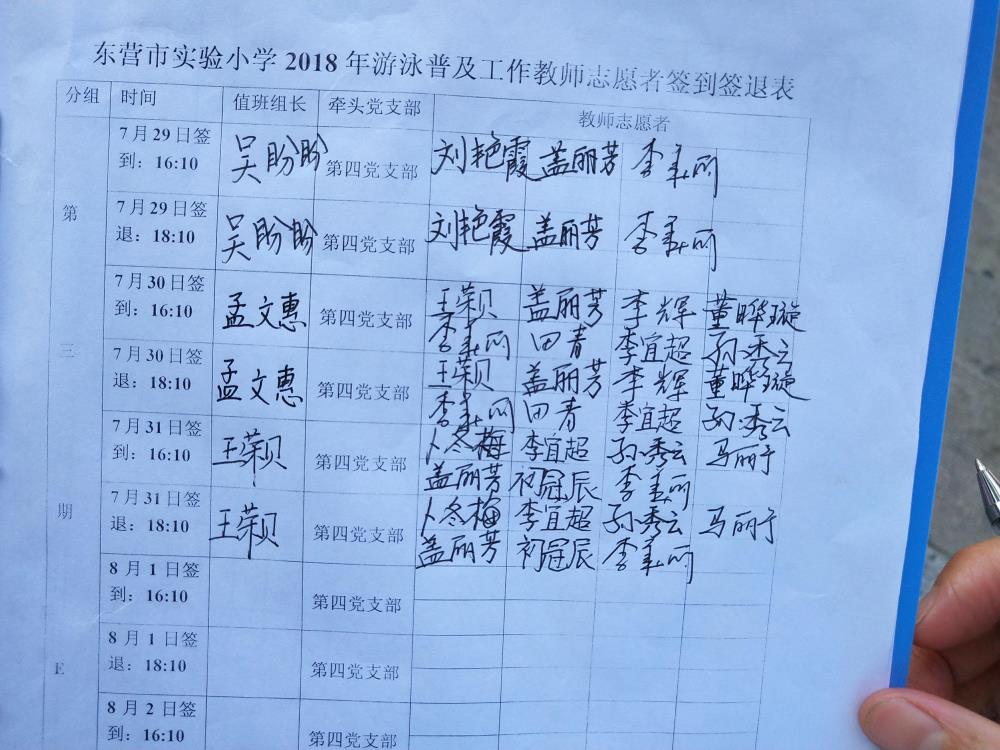 东营市实验小学 2018 年游泳普及工作教师志愿者签到签退表
分组 时间 值班组长 牵头党支部 教师志愿者
第三期
7 月 29 日签到：16:10 吴盼盼 第四党支部 刘艳霞 盖丽芳 李美丽
7 月 29 日签退：18:10 吴盼盼 第四党支部 刘艳霞 盖丽芳 李美丽
7 月 30 日签到：16:10 孟文惠 第四党支部 王荣贝 盖丽芳 李辉 董晔璇
李美丽 田青 李宜超 孙秀云
7 月 30 日签退：18:10 孟文惠 第四党支部 王荣贝 盖丽芳 李辉 董晔璇
李美丽 田青 李宜超 孙秀云
7 月 31 日签到：16:10 王荣贝 第四党支部 卜冬梅 李宜超 孙秀云 马丽宁
盖丽芳 初冠辰 李美丽
7 月 31 日签退：18:10 王荣贝 第四党支部 卜冬梅 李宜超 孙秀云 马丽宁
盖丽芳 初冠辰 李美丽
8 月 1 日签到：16:10 第四党支部
8 月 1 日签退：18:10 第四党支部
E
8 月 2 日签到：16:10 第四党支部